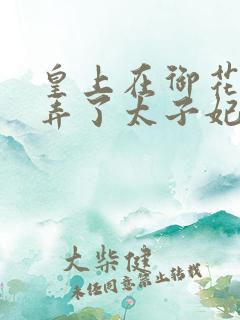 皇上在御花
弄了太子妃
大柴健
未经同意禁止转载